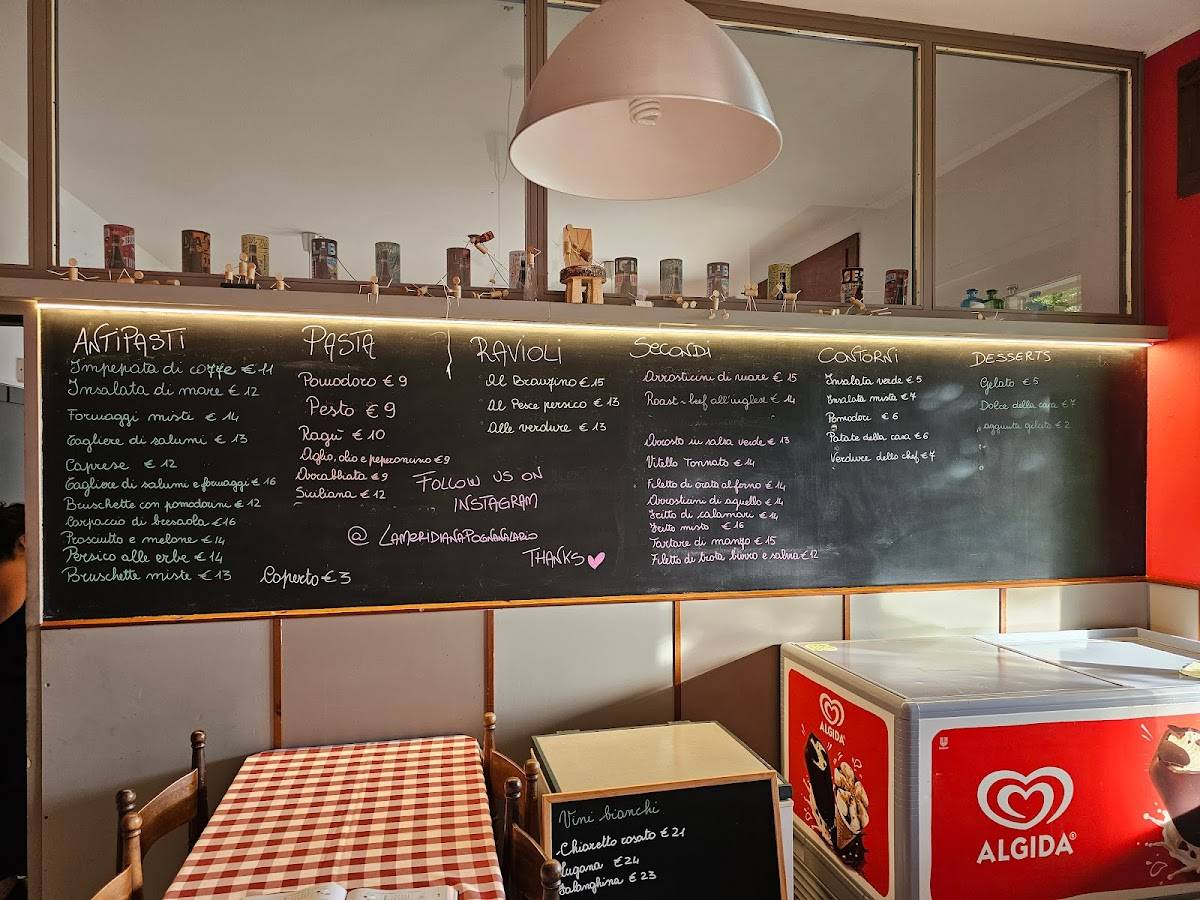 ANTIPASTI
Impepata di cozze € 11
Insalata di mare € 12
Formaggi misti € 14
Tagliere di salumi € 13
Caprese € 12
Tagliere di salumi e formaggi € 16
Bruschette con pomodorini € 12
Carpaccio di bresaola € 16
Prosciutto e melone € 14
Persico alle erbe € 14
Bruschette miste € 13
Coperto € 3
PASTA
Pomodoro € 9
Pesto € 9
Ragù € 10
Aglio, olio e peperoncino € 9
Arrabbiata € 9
Siciliana € 12
FOLLOW US ON
INSTAGRAM
@ LAMERIDIANAPOGNANALARIO
THANKS
RAVIOLI
Al Branzino € 15
Al Pesce persico € 13
Alle verdure € 13
SECONDI
Arrosticini di mare € 15
Roast-beef all'inglese € 14
Arrosto in salsa verde € 13
Vitello Tonnato € 14
Filetto di orata al forno € 14
Arrosticini di agnello € 14
Fritto di calamari € 14
Fritto misto € 16
Tartare di manzo € 15
Filetto di trota burro e salvia € 12
CONTORNI
Insalata verde € 5
Insalata mista € 7
Pomodori € 6
Patate della casa € 6
Verdure dello chef € 7
DESSERTS
Gelato € 5
Dolce della casa € 7
aggiunta gelato € 2
Vini bianchi
Chiaretto rosato € 21
Lugana € 24
Falanghina € 23
ALGIDA
ALGIDA